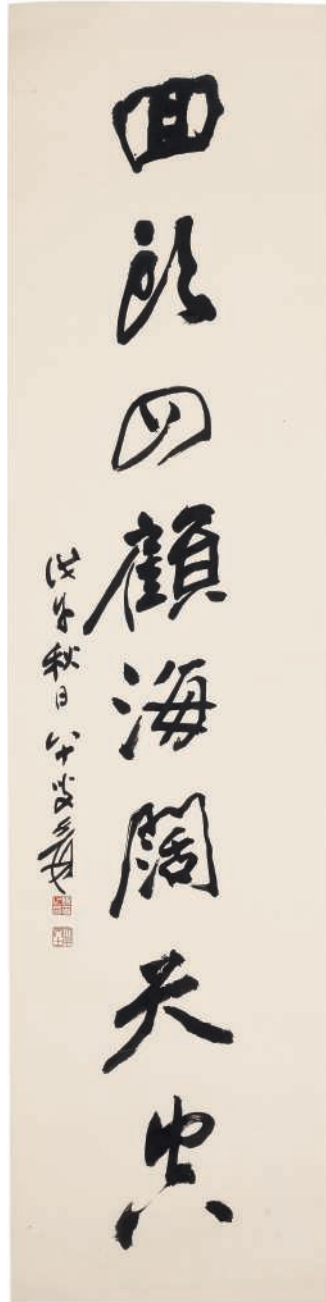 回頭四顧海闊天空
戊午秋日八十叟爰